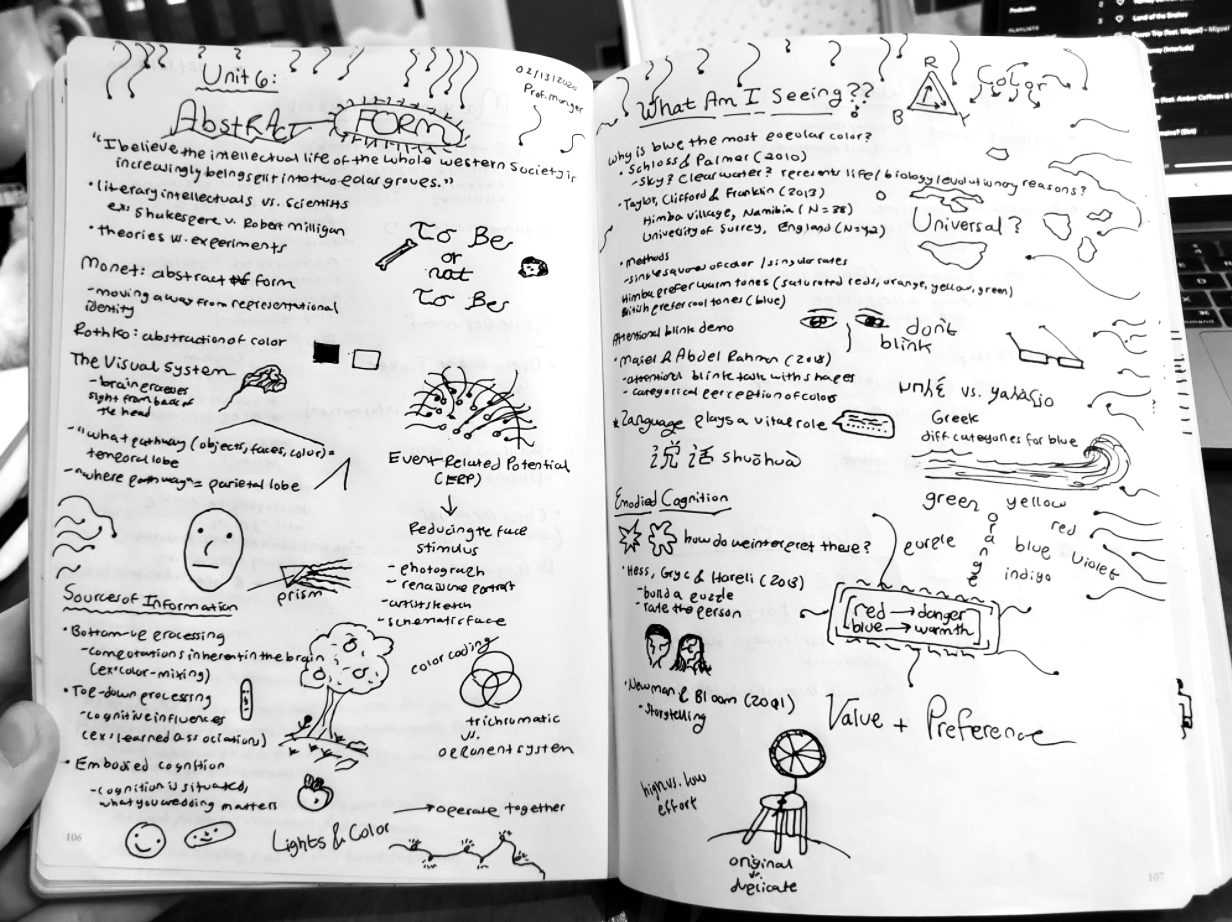 Unit 6:
02/13/2020
Prof. Munger
Abstract FORM
"I believe the intellectual life of the whole western society is
increasingly being split into two polar groups."
• literary intellectuals vs. Scientists
ex: Shakespere v. Robert Milligan
• theories w. experiments
To Be
or
not
To Be
Monet: abstract form
- moving away from representational
identity
Rothko: abstraction of color
The Visual System
- brain processes
sight from back of
the head
- "what pathway (objects, faces, color) =
temporal lobe
- "where pathway" = parietal lobe
Event-Related Potential
(ERP)
Reducing the face
stimulus
- photograph
- renaissance portrait
- artist sketch
- schematic face
prism
Sources of Information
• Bottom-up processing
- computations inherent in the brain
(ex: color-mixing)
• Top-down processing
- cognitive influences
(ex: learned associations)
• Embodied cognition
- cognition is situated,
what you are doing matters
color coding
trichromatic
vs.
opponent system
Lights & Color
→ operate together
106
What Am I Seeing??
R
B
Y
Color
Why is blue the most popular color?
• Schloss & Palmer (2010)
- sky? Clear water? represents life/biology/evolutionary reasons?
• Taylor, Clifford & Franklin (2013)
Himba Village, Namibia (N=38)
University of Surrey, England (N=42)
Universal?
• Methods
- single squares of color / singular rates
Himba prefer warm tones (saturated reds, orange, yellow, green)
British prefer cool tones (blue)
Attentional blink demo
don't
blink
• Maier & Abdel Rahman (2018)
- attentional blink task with shapes
- categorical perception of colors
vs. yaλaζio
Greek
diff categories for blue
* Language plays a vital role
说话 shuōhuà
Emodied Cognition
how do we interpret these?
green yellow
orange
red
purple
blue
violet
indigo
• Hess, Gryc & Hareli (2013)
- build a puzzle
- rate the person
red → danger
blue → warmth
• Newman & Bloom (2011)
- storytelling
Value + Preference
high vs. low
effort
original
duplicate
107
Podcasts
PLAYLISTS
Land of the Snakes
Power Trip (feat. Miguel) - Miguel
command